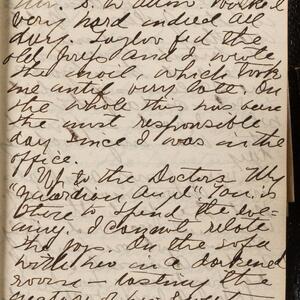 Mr. S. W. worked
very hard indeed all
day. Taylor fed the
old press and I wrote
the mail which took
me until very late. On
the whole this has been
the most responsible
day since I was in the
office.
Up to the Doctors. My
"Guardian Angel" Lou. is
there to spend the eve-
ning. I cannot relate
the joys. On the sofa
with her in a darkened
room - tasting the